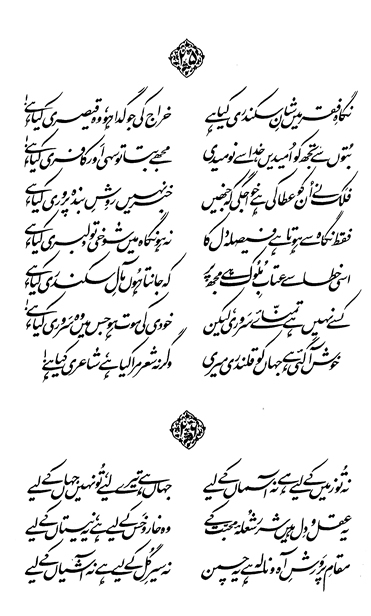 ۲۵
نگاہِ فقر میں شانِ سکندری کیا ہے خراج کی جو گدا ہو، وہ قیصری کیا ہے!
بُتوں سے تجھ کو اُمیدیں، خدا سے نومیدی مجھے بتا تو سہی اور کافری کیا ہے!
فلک نے اُن کو عطا کی ہے خواجگی کہ جنھیں خبر نہیں روشِ بندہ پروری کیا ہے!
فقط نگاہ سے ہوتا ہے فیصلہ دل کا نہ ہو نگاہ میں شوخی تو دلبری کیا ہے!
اسی خطا سے عتابِ مُلوک ہے مجھ پر کہ جانتا ہوں مآلِ سکندری کیا ہے!
کسے نہیں ہے تمنّائے سروری، لیکن خودی کی موت ہو جس میں وہ سروری کیا ہے!
خوش آ گئی ہے جہاں کو قلندری میری وگرنہ شعر مرا کیا ہے، شاعری کیا ہے!
۲۶
نہ تُو زمیں کے لیے ہے نہ آسماں کے لیے جہاں ہے تیرے لیے، تُو نہیں جہاں کے لیے
یہ عقل و دل ہیں شرر شعلۂ محبّت کے وہ خار و خس کے لیے ہے، یہ نیستاں کے لیے
مقامِ پرورشِ آہ و نالہ ہے یہ چمن نہ سیرِ گُل کے لیے ہے نہ آشیاں کے لیے